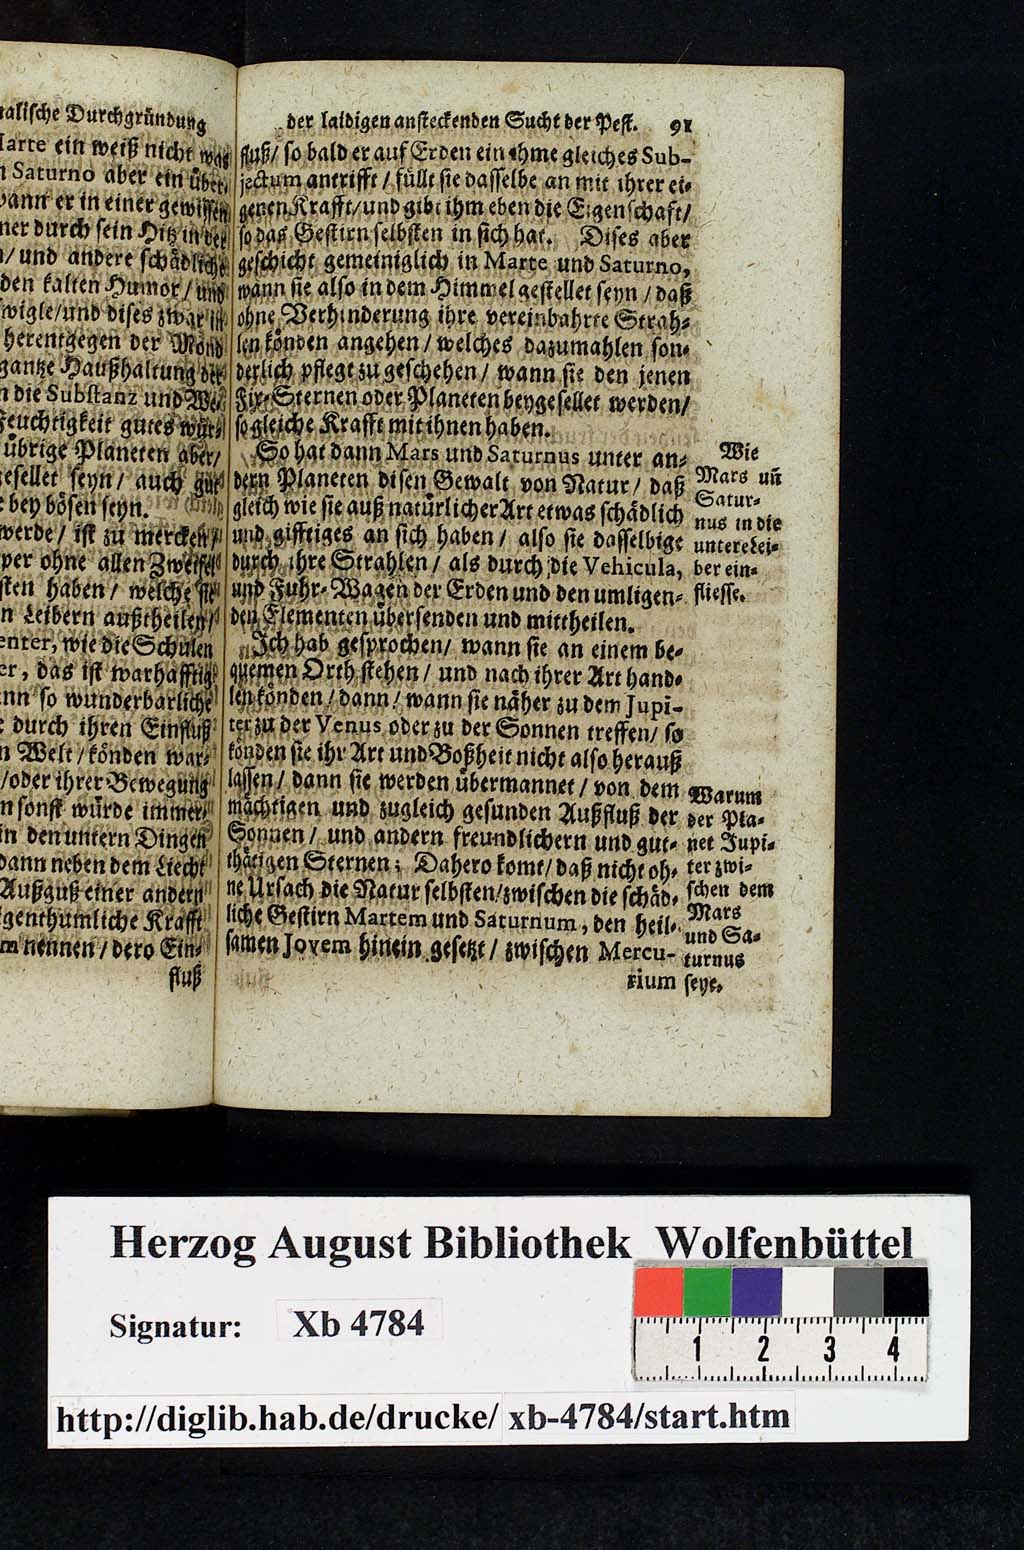 nalische Durchgründung
Marte ein weiß nicht was
n Saturno aber ein über,
wann er in einer gewissen
ner durch sein Hitz in der
n/ und andere schädliche
den kalten Humor/ und
wigle/und dises zwar ist
herentgegen der Mond
gantze Haußhaltung der
n die Substanz und We-
Feuchtigkeit gutes wür-
übrige Planeten aber/
gesellet seyn/ auch gut
bey bösen seyn.
werde/ ist zu mercken/
per ohne allen Zweiffel
sten haben/ welche sie
n Leibern außtheilen/
enter, wie die Schulen
er, das ist warhafftig
nn so wunderbarliche
durch ihren Einfluß
n Welt/ könden war-
/oder ihrer Bewegung
n sonst würde immer-
in den untern Dingen
dann neben dem Liecht
Außguß einer andern
igenthumliche Krafft
m nennen/ dero Ein-
fluß
der laidigen ansteckenden Sucht der Pest. 91
fluß/ so bald er auf Erden ein ihme gleiches Sub-
jectum antrifft/ füllt sie dasselbe an mit ihrer ei-
genen Krafft/und gibt ihm eben die Eigenschaft/
so das Gestirn selbsten in sich hat. Dises aber
geschicht gemeiniglich in Marte und Saturno,
wann sie also in dem Himmel gestellet seyn/ daß
ohne Verhinderung ihre vereinbahrte Strah-
len könden angehen/ welches dazumahlen son-
derlich pflegt zu geschehen/ wann sie den jenen
Fix-Sternen oder Planeten beygesellet werden/
so gleiche Krafft mit ihnen haben.
So hat dann Mars und Saturnus unter an-
dern Planeten disen Gewalt von Natur/ daß
gleich wie sie auß natürlicher Art etwas schädlich
und gifftiges an sich haben/ also sie dasselbige
durch ihre Strahlen/ als durch die Vehicula,
und Fuhr-Wagen der Erden und den umligen-
den Elementen übersenden und mittheilen.
Ich hab gesprochen/ wann sie an einem be-
quemen Orth stehen/ und nach ihrer Art hand-
len könden/ dann/ wann sie näher zu dem Jupi-
ter zu der Venus oder zu der Sonnen treffen/ so
könden sie ihr Art und Boßheit nicht also herauß
lassen/ dann sie werden übermannet/ von dem
mächtigen und zugleich gesunden Außfluß der
Sonnen/ und andern freundlichern und gut-
thätigen Sternen; Dahero komt/ daß nicht oh-
ne Ursach die Natur selbsten/zwischen die schäd-
liche Gestirn Martem und Saturnum, den heil-
samen Jovem hinein gesetzt/ zwischen Mercu-
rium
Wie
Mars un̄
Satur-
nus in die
untere Lei-
ber ein-
fliesse.
Warum
der Pla-
net Jupi-
ter zwi-
schen dem
Mars
und Sa-
turnus
seye.
Herzog August Bibliothek Wolfenbüttel
Signatur: Xb 4784
1 2 3 4
http://diglib.hab.de/drucke/ xb-4784/start.htm